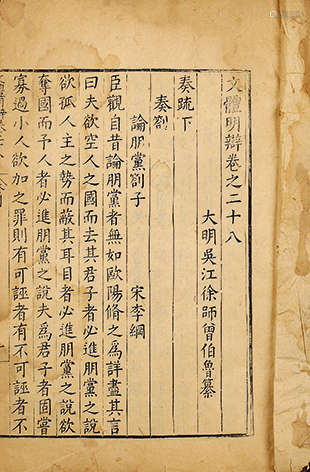 文體明辯卷之二十八
大明吳江徐師曾伯魯纂
奏疏下
奏劄
論朋黨劄子　宋李綱
臣觀自昔論朋黨者無如歐陽脩之為詳盡其言
曰夫欲空人之國而去其君子者必進朋黨之說
欲孤人主之勢而蔽其耳目者必進朋黨之說欲
奪國而予人者必進朋黨之說夫為君子者固嘗
寡過小人欲加之罪則有可誣者有不可誣者不